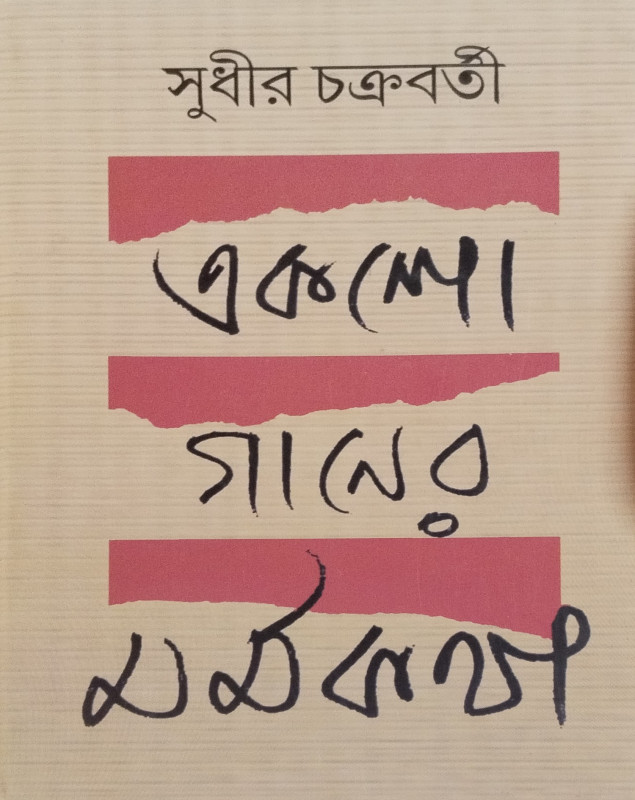 সুধীর চক্রবর্তী
একশো
গানের
মর্মকথা